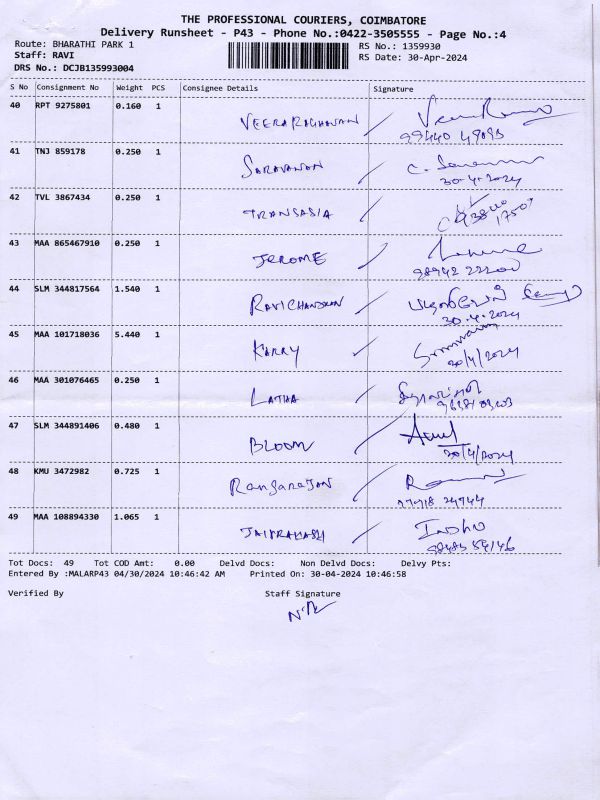 THE PROFESSIONAL COURIERS, COIMBATORE
Delivery Runsheet - P43 - Phone No.:0422-3505555 - Page No.:4
Route: BHARATHI PARK 1
RS No.: 1359930
Staff: RAVI
RS Date: 30-Apr-2024
DRS No.: DCJB135993004
S No Consignment No Weight PCS Consignee Details Signature
40 RPT 9275801 0.160 1 VEERARAGHAVAN
99440 49093
41 TNJ 859178 0.250 1 SARAVANAN
30-4-2024
42 TVL 3867434 0.250 1 TRANSASIA
43 MAA 865467910 0.250 1 JEROME
98942 22200
44 SLM 344817564 1.540 1 RAVICHANDRAN
30-4-2024
45 MAA 101718036 5.440 1 KARRY
30/4/2024
46 MAA 301076465 0.250 1 LATHA
47 SLM 344891406 0.480 1 BLOOM
30/4/2024
48 KMU 3472982 0.725 1 Rangarajan
49 MAA 108894330 1.065 1 JAIPRAKASH
Tot Docs: 49 Tot COD Amt: 0.00 Delvd Docs: Non Delvd Docs: Delvy Pts:
Entered By :MALARP43 04/30/2024 10:46:42 AM Printed On: 30-04-2024 10:46:58
Verified By Staff Signature